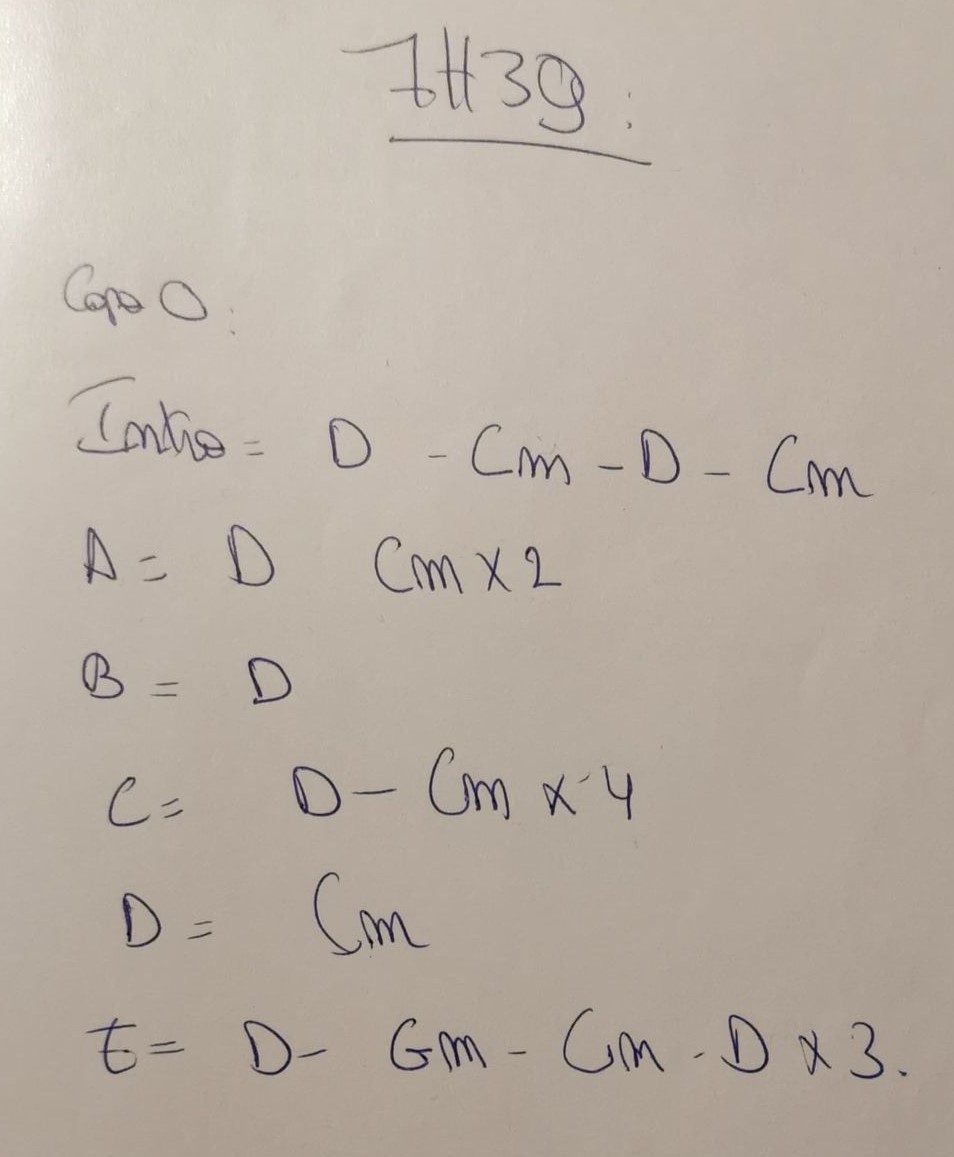 7H39:
Capo 0:
Intro = D - Cm - D - Cm
A = D Cm x 2
B = D
C = D - Cm x 4
D = Cm
E = D - Gm - Cm - D x 3.